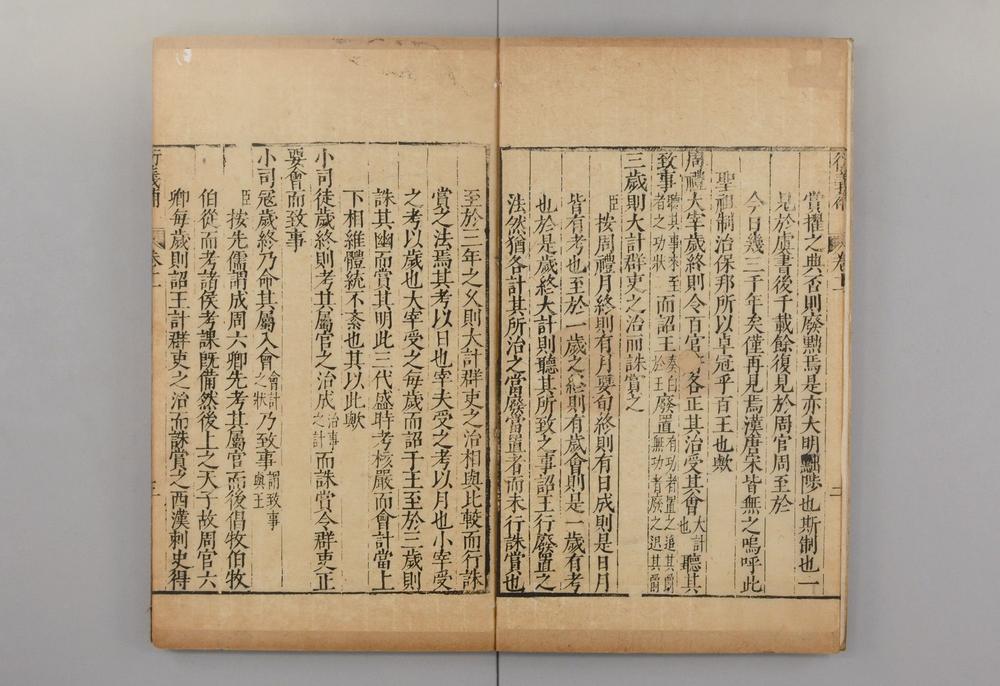 賞擢之典否則廢黜焉是亦大明黜陟也斯制也一
見於虞書後千載餘復見於周官周至於
今日幾三千年矣僅再見焉漢唐宋皆無之嗚呼此
聖祖制治保邦所以卓冠乎百王也歟
周禮大宰歲終則令百官各正其治受其會大計也聽其
致事聽其事來至者之功狀而詔王奏白於王廢置有功者置之進其爵無功者廢之退其爵
三歲則大計群吏之治而誅賞之
臣按周禮月終則有月要旬終則有日成則是日月
皆有考也至於一歲之終則有歲會則是一歲有考
也於是歲終大計則聽其所致之事詔王行廢置之
法然猶各計其所治之當廢當置者而未行誅賞也
至於三年之久則大計群吏之治相與比較而行誅
賞之法焉其考以日也宰夫受之考以月也小宰受
之考以歲也大宰受之每歲而詔于王至於三歲則
誅其幽而賞其明此三代盛時考核嚴而會計當上
下相維體統不紊也其以此歟
小司徒歲終則考其屬官之治成治事之計而誅賞令群吏正
要會而致事
小司寇歲終乃命其屬入會會計之狀乃致事謂致事與王
臣按先儒謂成周六卿先考其屬官而後倡牧伯牧
伯從而考諸侯考課既備然後上之天子故周官六
卿每歲則詔王計群吏之治而誅賞之西漢刺史得